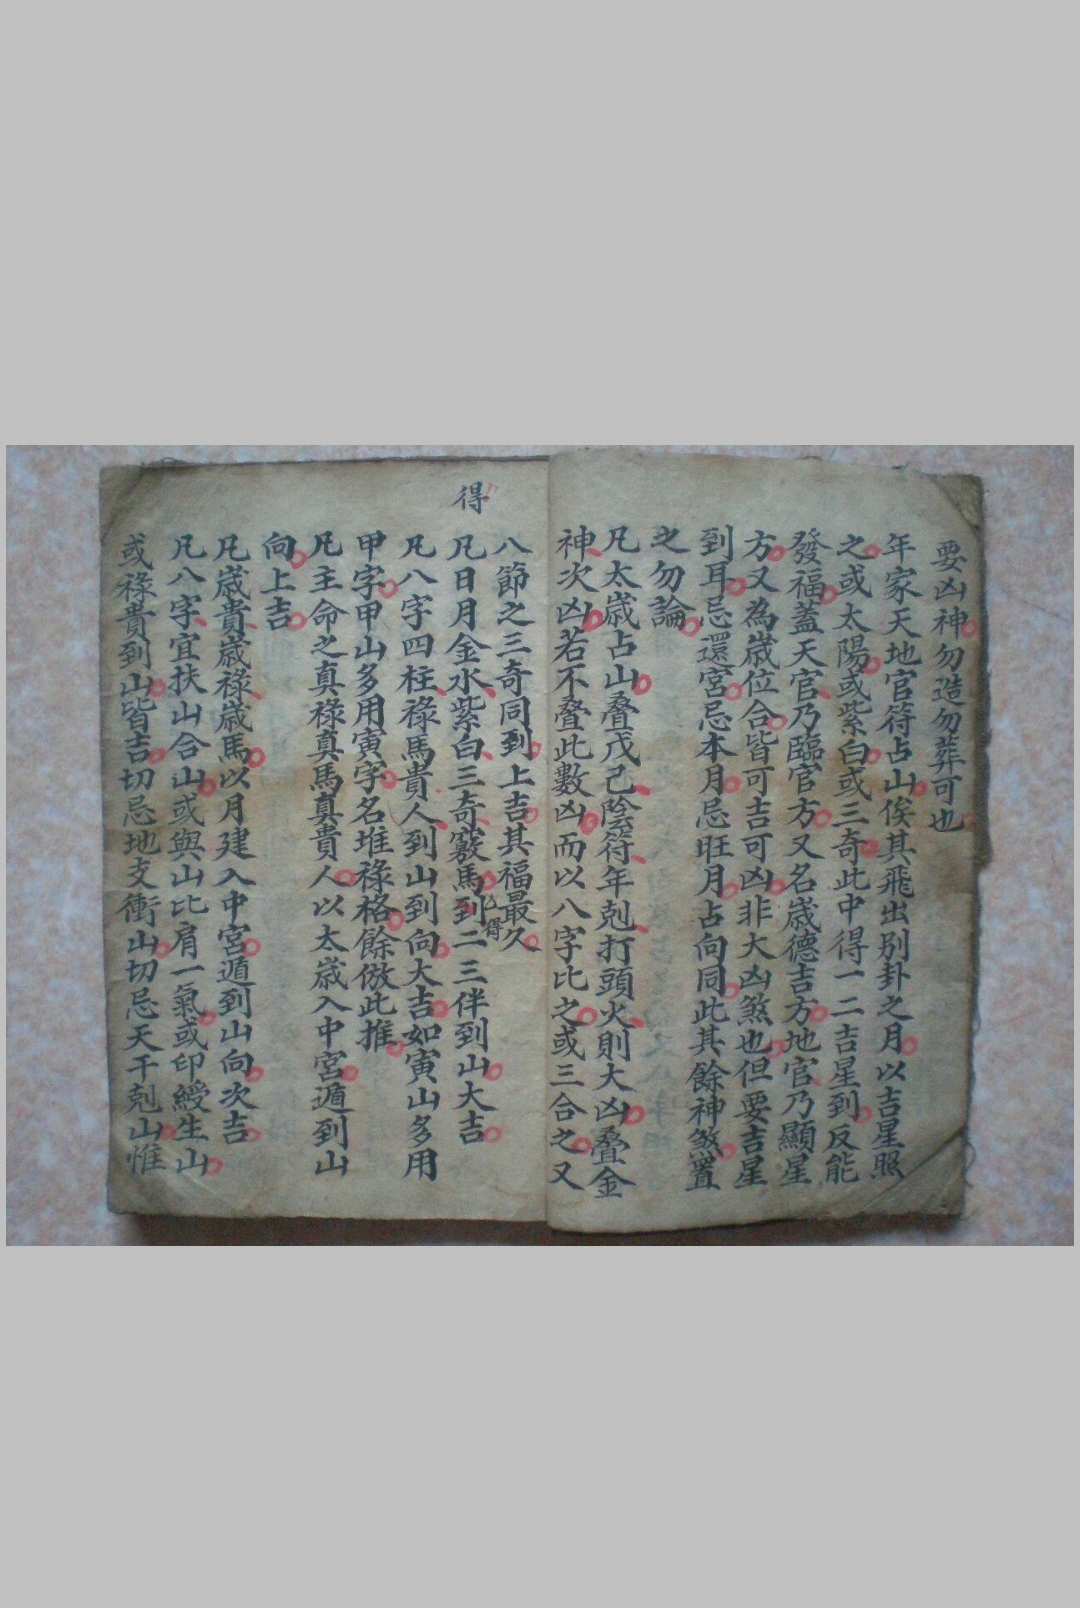 要凶神勿造勿葬可也
年家天地官符占山俟其飛出别卦之月以吉星照
之或太陽或紫白或三奇此中得一二吉星到反能
發福蓋天官乃臨官方又名歳德吉方地官乃顯星
方又為歳位合皆可吉可凶非大凶煞也但要吉星
到耳忌還宮忌本月忌旺月占向同此其餘神煞置
之勿論
凡太歳占山叠戊己陰符年剋打頭火則大凶叠金
神次凶若不叠此數凶而以八字比之或三合之又
得
八節之三奇同到上吉其福最久
凡日月金水紫白三奇竅馬到二三件到山大吉
凡八字四柱祿馬貴人到山到向大吉如寅山多用
甲字甲山多用寅字名堆祿格餘倣此推
凡主命之真祿真馬真貴人以太歳入中宮遁到山
向上吉
凡歳貴歳祿歳馬以月建入中宮遁到山向次吉
凡八字宜扶山合山或與山比肩一氣或印綬生山
或祿貴到山皆吉切忌地支衝山切忌天干剋山惟